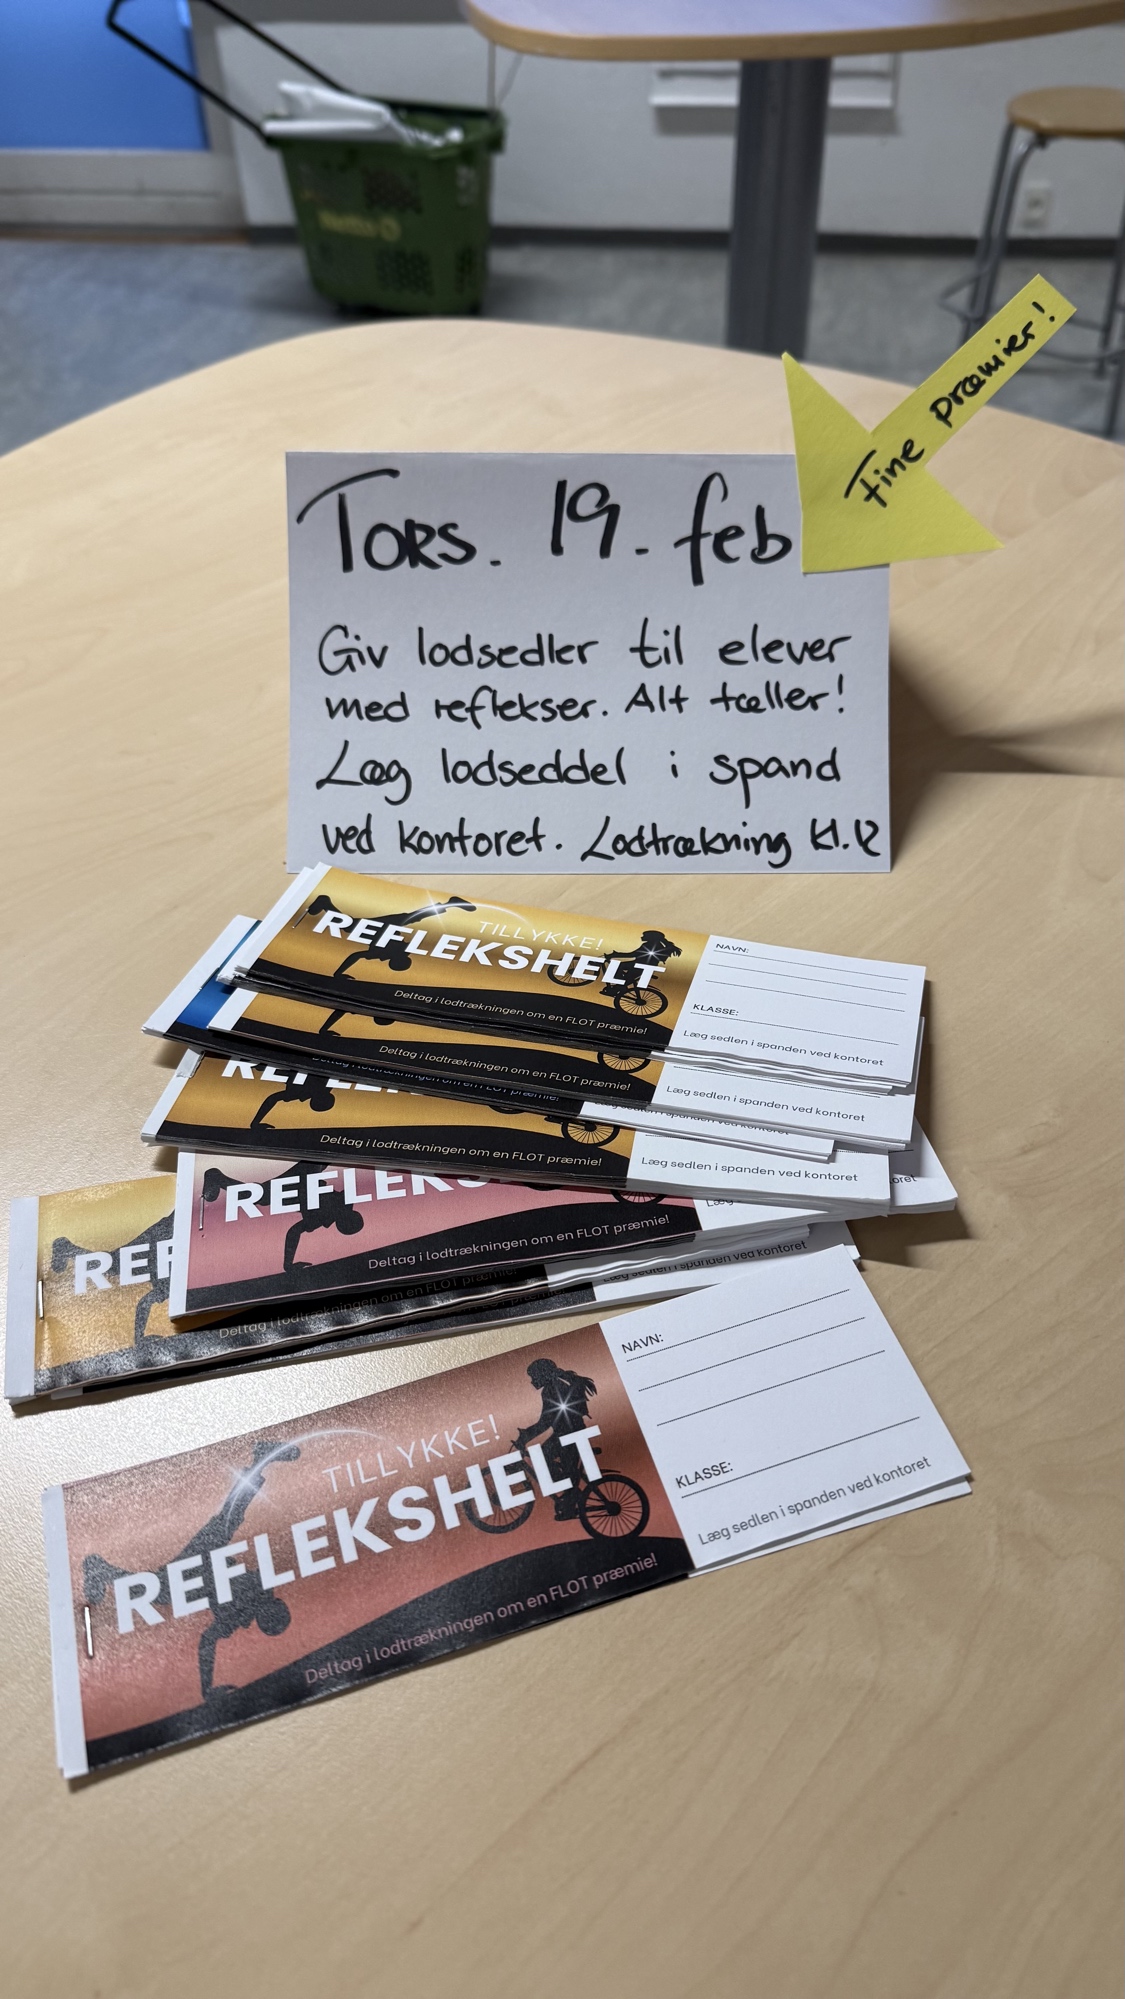 Netto
Fine præmier!
Tors. 19. feb
Giv lodsedler til elever
med reflekser. Alt tæller!
Læg lodseddel i spand
ved kontoret. Lodtrækning kl. 12
TILLYKKE!
REFLEKSHELT
Deltag i lodtrækningen om en FLOT præmie!
NAVN:
KLASSE:
Læg sedlen i spanden ved kontoret
Deltag i lodtrækningen om en FLOT præmie!
Læg sedlen i spanden ved kontoret
REFLE
Deltag i lodtrækningen om en FLOT præmie!
Læg sedlen i spanden ved kontoret
REFLEKS
Deltag i lodtrækningen om en FLOT præmie!
REF
Deltag i lodtrækningen om en FLOT præmie!
Læg sedlen i spanden ved kontoret
TILLYKKE!
REFLEKSHELT
Deltag i lodtrækningen om en FLOT præmie!
NAVN:
KLASSE:
Læg sedlen i spanden ved kontoret